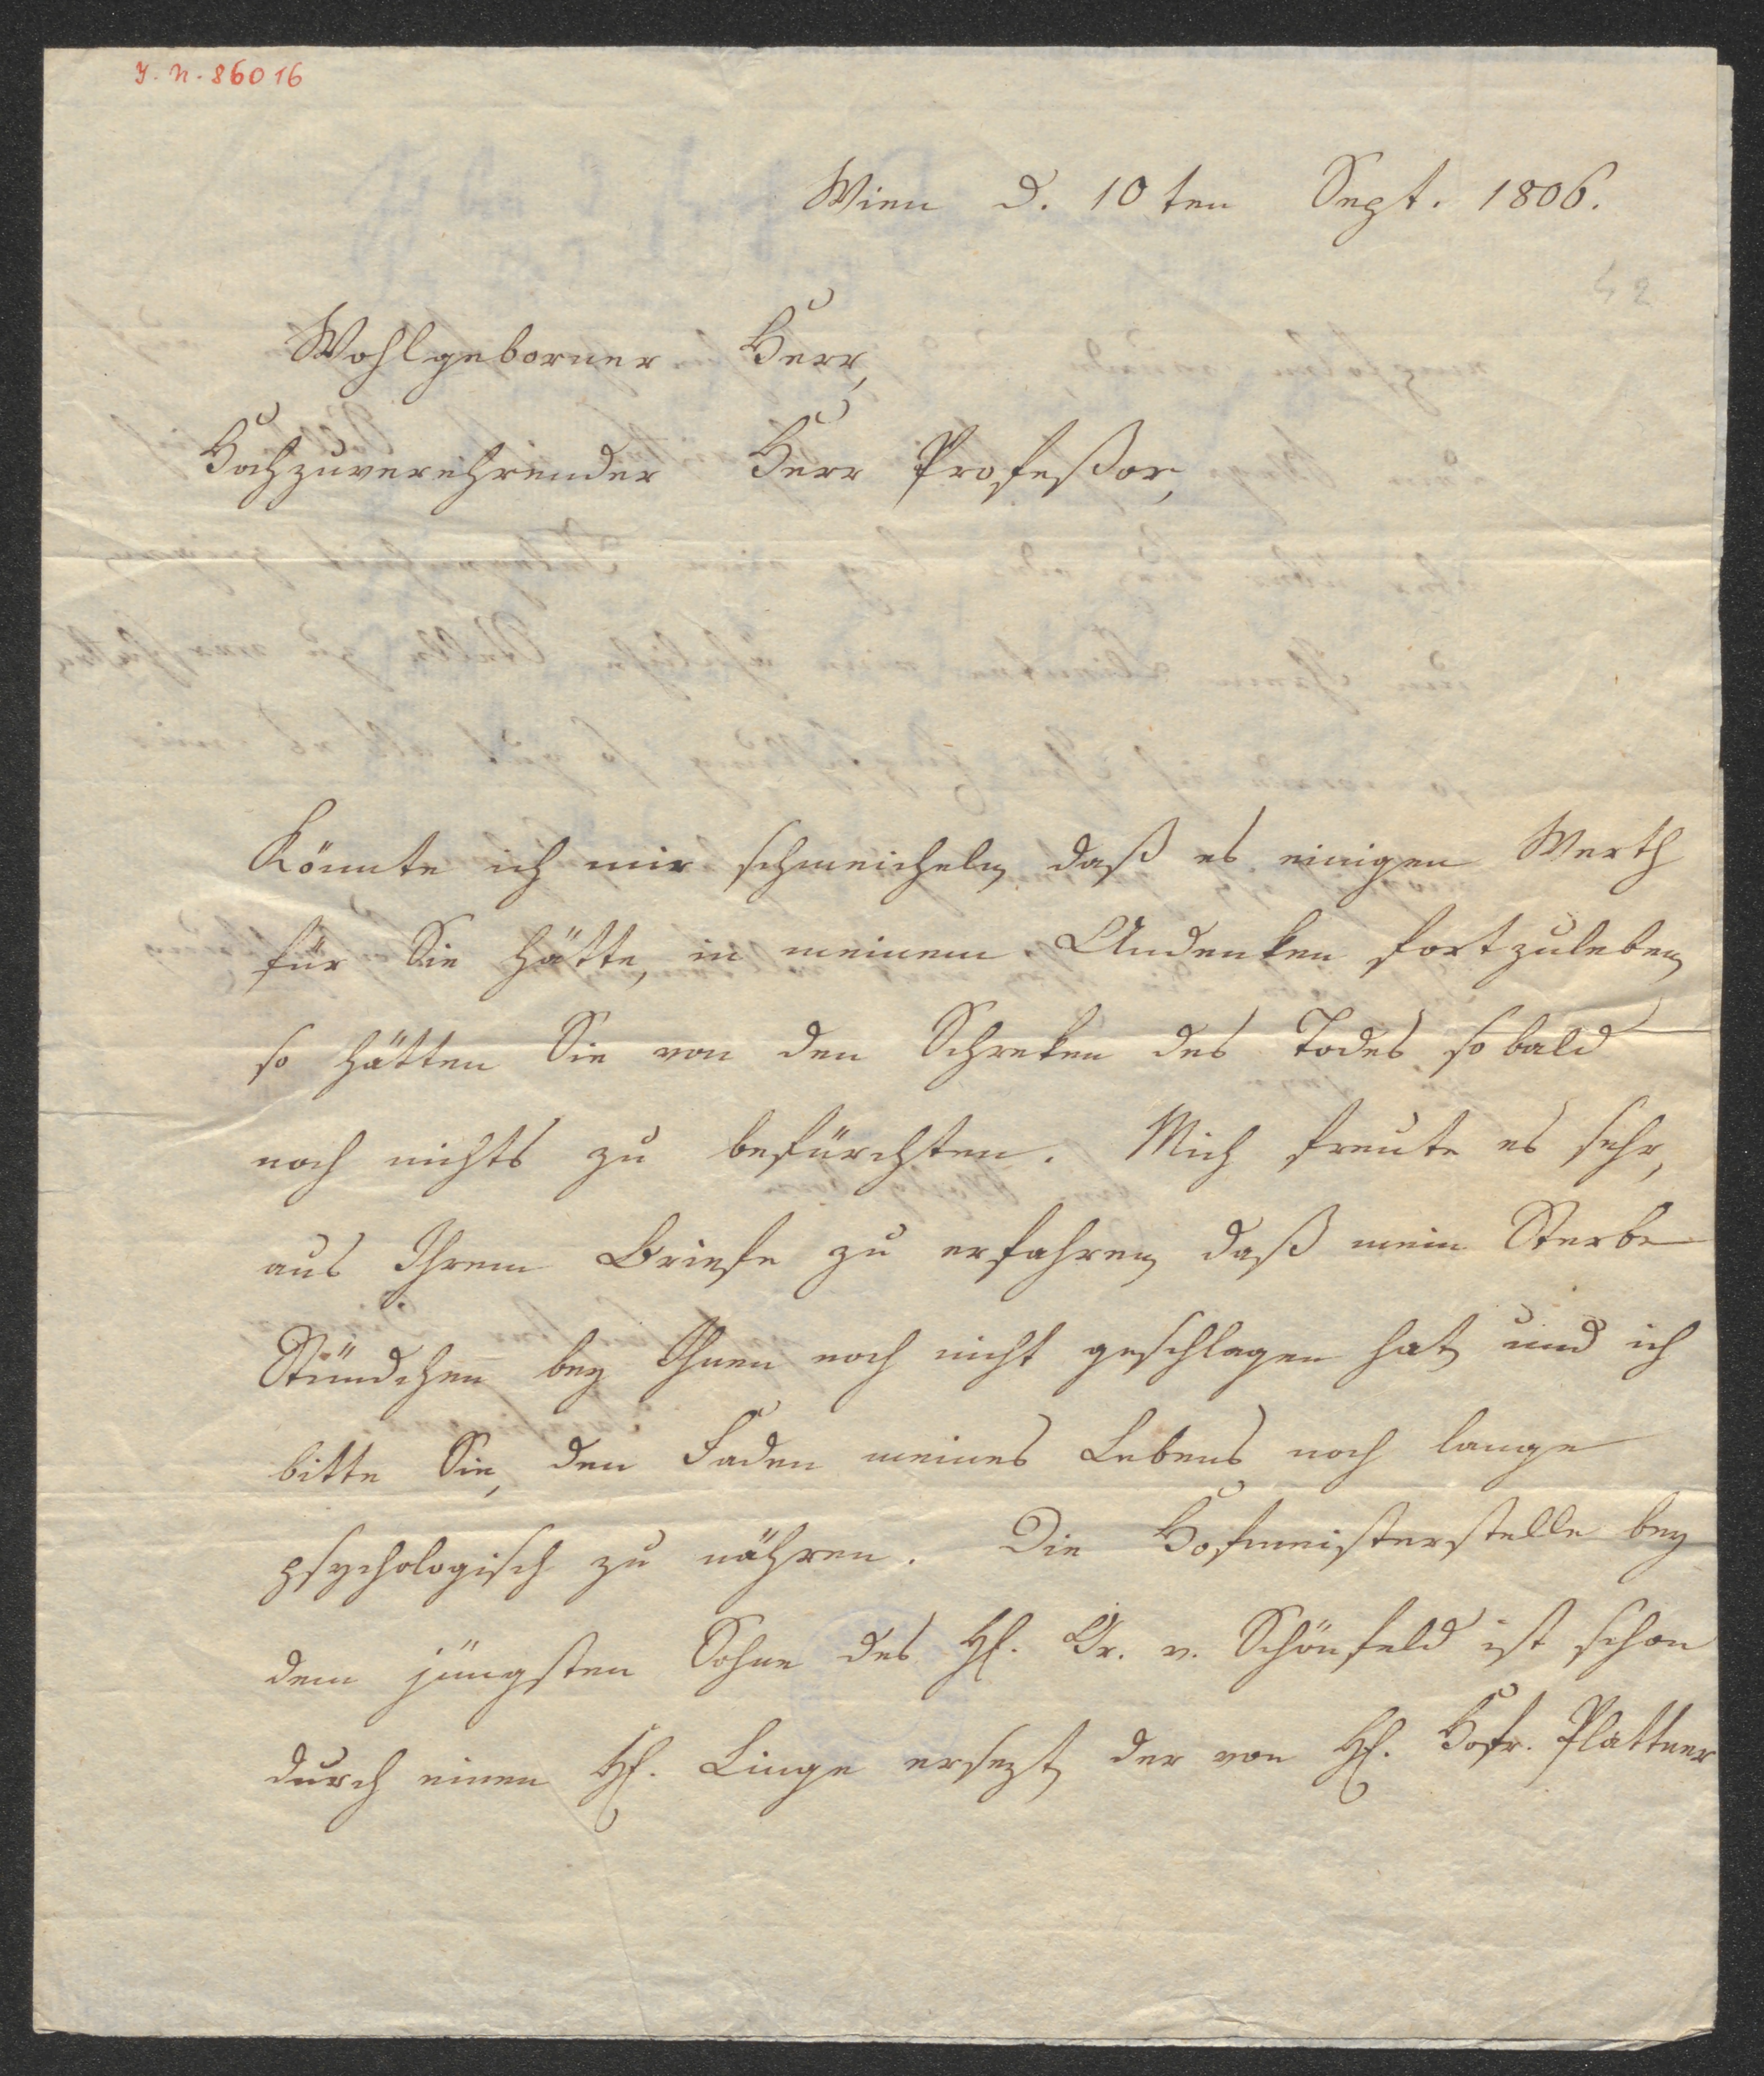 J. N. 86016
Wien d. 10ten Sept. 1806.
Wohlgeborner Herr,
Hochzuverehrender Herr Profeßor,
Könnte ich mir schmeicheln, daß es einigen Werth
für Sie hätte, in meinem Andenken fortzuleben,
so hätten Sie von den Schreken des Todes so bald
noch nichts zu befürchten. Mich freute es sehr,
aus Ihrem Briefe zu erfahren, daß mein Sterbe
Stündchen bey Ihnen noch nicht geschlagen hat, und ich
bitte Sie, den Faden meines Lebens noch lange
psychologisch zu nähren. Die Hofmeisterstelle bey
dem jüngsten Sohne des H. Gr. v. Schönfeld ist schon
durch einen H. Linge ersezt, der von H. Hofr. Plattner